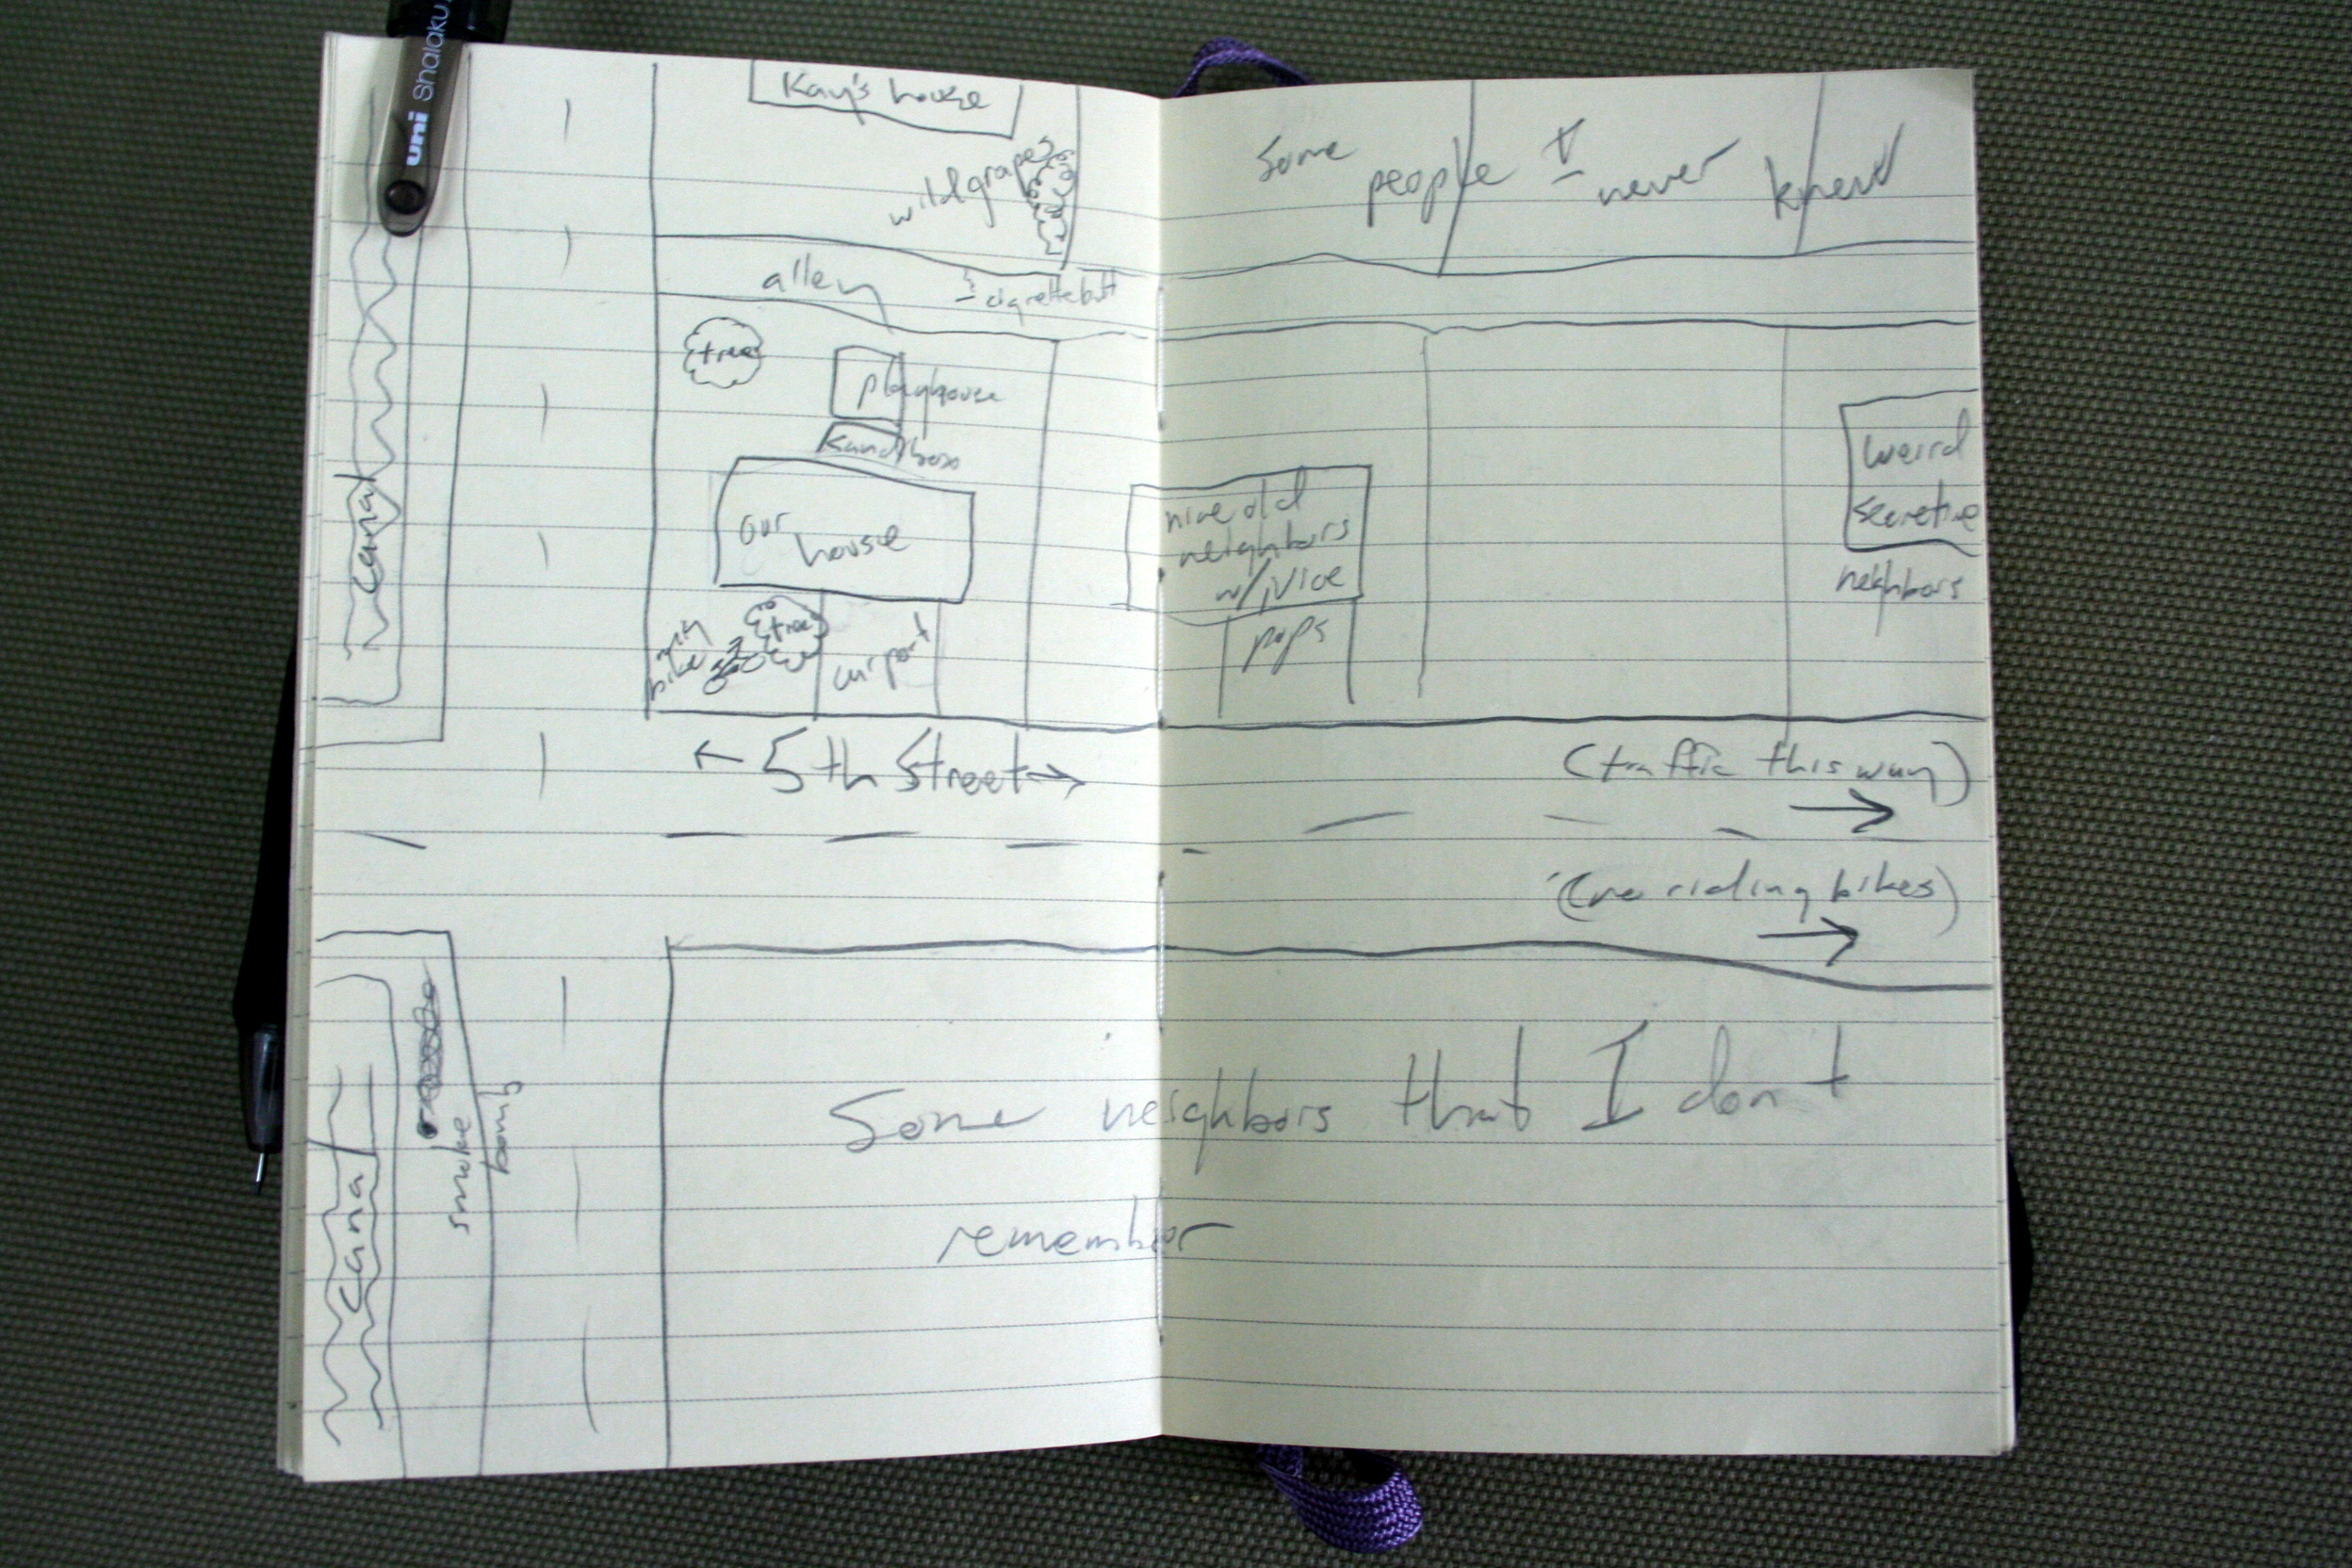 uni Shalaku
Kay's house
wild grapes
Some people I never knew
alley
cigarette butt
tree
playhouse
Sandbox
our house
nice old
neighbors
w/ juice
pops
weird
secretive
neighbors
my
bike
tree
carport
canal
← 5th Street →
(traffic this way)
→
(no riding bikes)
→
canal
smoke
bomb
Some neighbors that I dont
remember